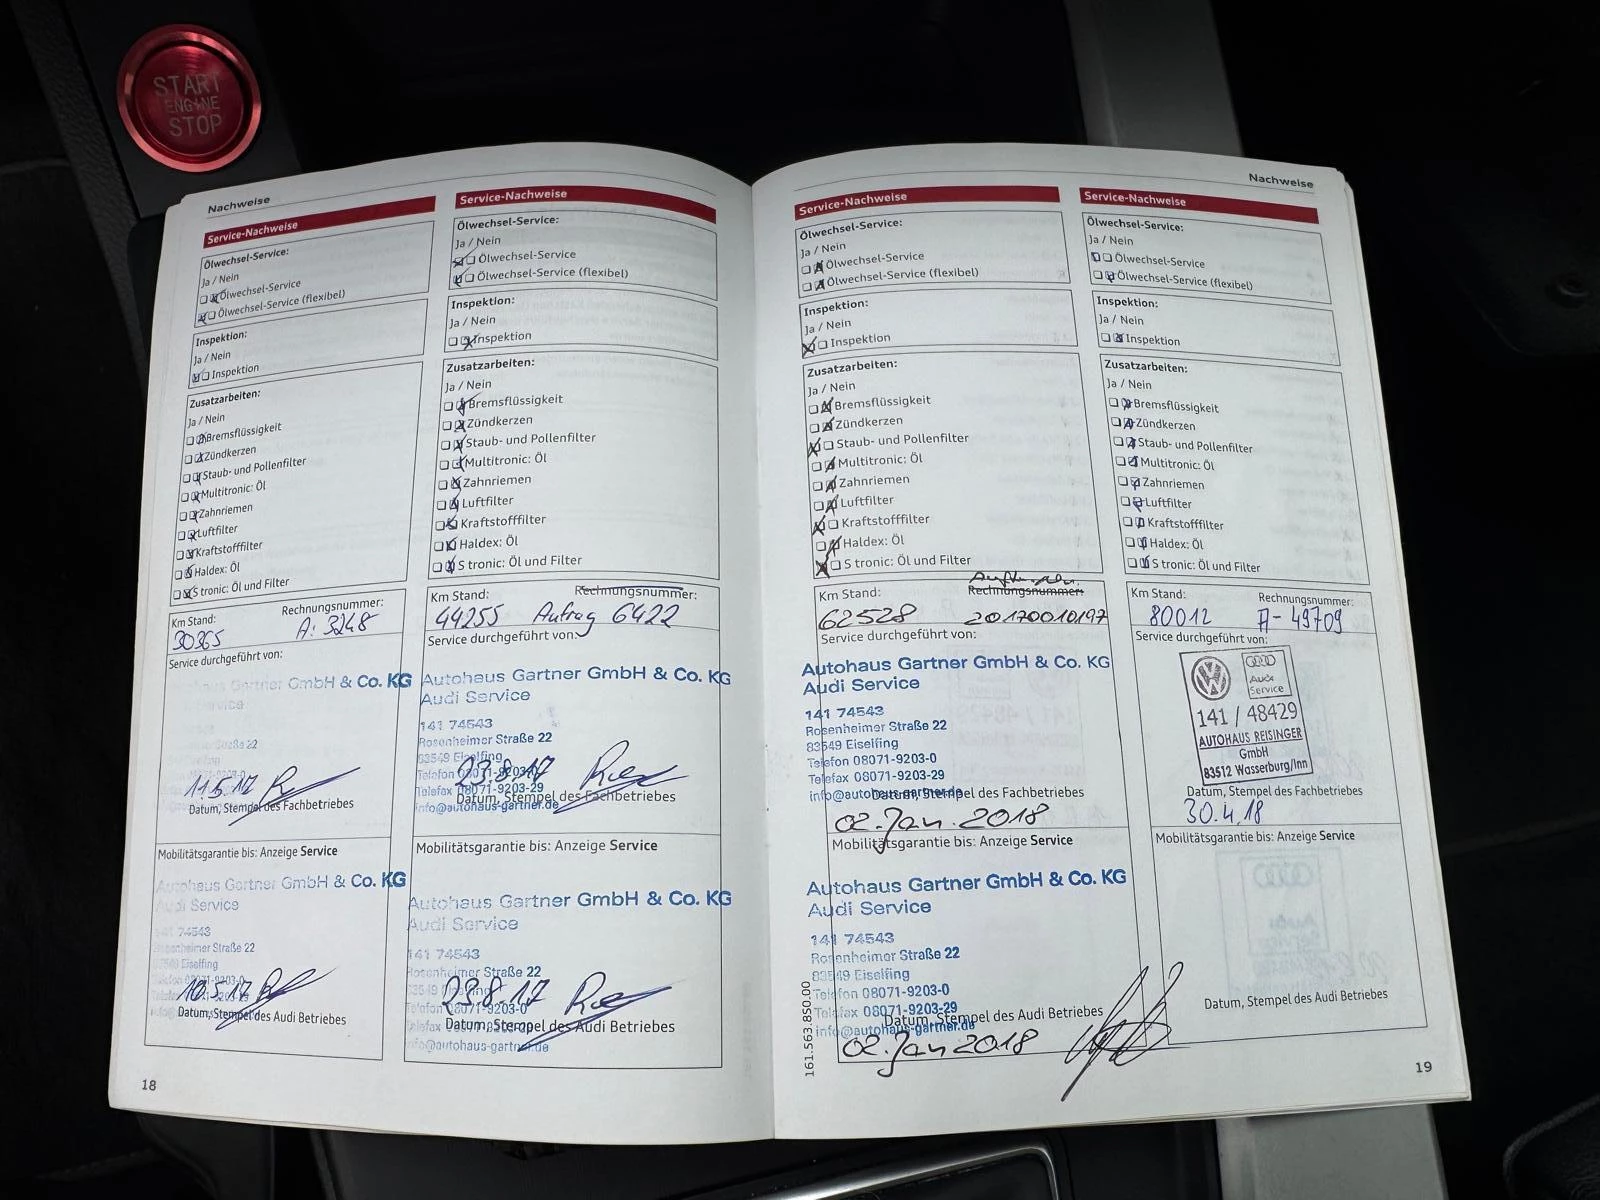 START
ENGINE
STOP
Nachweise
Service-Nachweise
Ölwechsel-Service:
Ja / Nein
Ölwechsel-Service
Ölwechsel-Service (flexibel)
Inspektion:
Ja / Nein
Inspektion
Zusatzarbeiten:
Ja / Nein
Bremsflüssigkeit
Zündkerzen
Staub- und Pollenfilter
Multitronic: Öl
Zahnriemen
Luftfilter
Kraftstofffilter
Haldex: Öl
S tronic: Öl und Filter
Km Stand: Rechnungsnummer:
30365 A: 3248
Service durchgeführt von:
Gartner GmbH & Co. KG
Service
Straße 22
11.5.17
Datum, Stempel des Fachbetriebes
Mobilitätsgarantie bis: Anzeige Service
Autohaus Gartner GmbH & Co. KG
Audi Service
141 74543
Rosenheimer Straße 22
83549 Eiselfing
Telefon 08071-9203-0
10.5.17
Datum, Stempel des Audi Betriebes
18
Service-Nachweise
Ölwechsel-Service:
Ja / Nein
Ölwechsel-Service
Ölwechsel-Service (flexibel)
Inspektion:
Ja / Nein
Inspektion
Zusatzarbeiten:
Ja / Nein
Bremsflüssigkeit
Zündkerzen
Staub- und Pollenfilter
Multitronic: Öl
Zahnriemen
Luftfilter
Kraftstofffilter
Haldex: Öl
S tronic: Öl und Filter
Km Stand: Rechnungsnummer:
44255 Auftrag 6422
Service durchgeführt von:
Autohaus Gartner GmbH & Co. KG
Audi Service
141 74543
Rosenheimer Straße 22
83549 Eiselfing
Telefon 08071-9203-0
Telefax 08071-9203-29
info@autohaus-gartner.de
23.8.17
Datum, Stempel des Fachbetriebes
Mobilitätsgarantie bis: Anzeige Service
Autohaus Gartner GmbH & Co. KG
Audi Service
141 74543
Rosenheimer Straße 22
83549 Eiselfing
Telefon 08071-9203-0
Telefax 08071-9203-29
info@autohaus-gartner.de
23.8.17
Datum, Stempel des Audi Betriebes
Nachweise
Service-Nachweise
Ölwechsel-Service:
Ja / Nein
Ölwechsel-Service
Ölwechsel-Service (flexibel)
Inspektion:
Ja / Nein
Inspektion
Zusatzarbeiten:
Ja / Nein
Bremsflüssigkeit
Zündkerzen
Staub- und Pollenfilter
Multitronic: Öl
Zahnriemen
Luftfilter
Kraftstofffilter
Haldex: Öl
S tronic: Öl und Filter
Km Stand: Rechnungsnummer:
62528 20170010197
Service durchgeführt von:
Autohaus Gartner GmbH & Co. KG
Audi Service
141 74543
Rosenheimer Straße 22
83549 Eiselfing
Telefon 08071-9203-0
Telefax 08071-9203-29
info@autohaus-gartner.de
Datum, Stempel des Fachbetriebes
02. Jan. 2018
Mobilitätsgarantie bis: Anzeige Service
Autohaus Gartner GmbH & Co. KG
Audi Service
141 74543
Rosenheimer Straße 22
83549 Eiselfing
Telefon 08071-9203-0
Telefax 08071-9203-29
info@autohaus-gartner.de
Datum, Stempel des Audi Betriebes
02. Jan 2018
161.563.8S0.00
Service-Nachweise
Ölwechsel-Service:
Ja / Nein
Ölwechsel-Service
Ölwechsel-Service (flexibel)
Inspektion:
Ja / Nein
Inspektion
Zusatzarbeiten:
Ja / Nein
Bremsflüssigkeit
Zündkerzen
Staub- und Pollenfilter
Multitronic: Öl
Zahnriemen
Luftfilter
Kraftstofffilter
Haldex: Öl
S tronic: Öl und Filter
Km Stand: Rechnungsnummer:
80012 A-49709
Service durchgeführt von:
Audi
Service
141 / 48429
AUTOHAUS REISINGER
GmbH
83512 Wasserburg/Inn
Datum, Stempel des Fachbetriebes
30.4.18
Mobilitätsgarantie bis: Anzeige Service
Datum, Stempel des Audi Betriebes
19